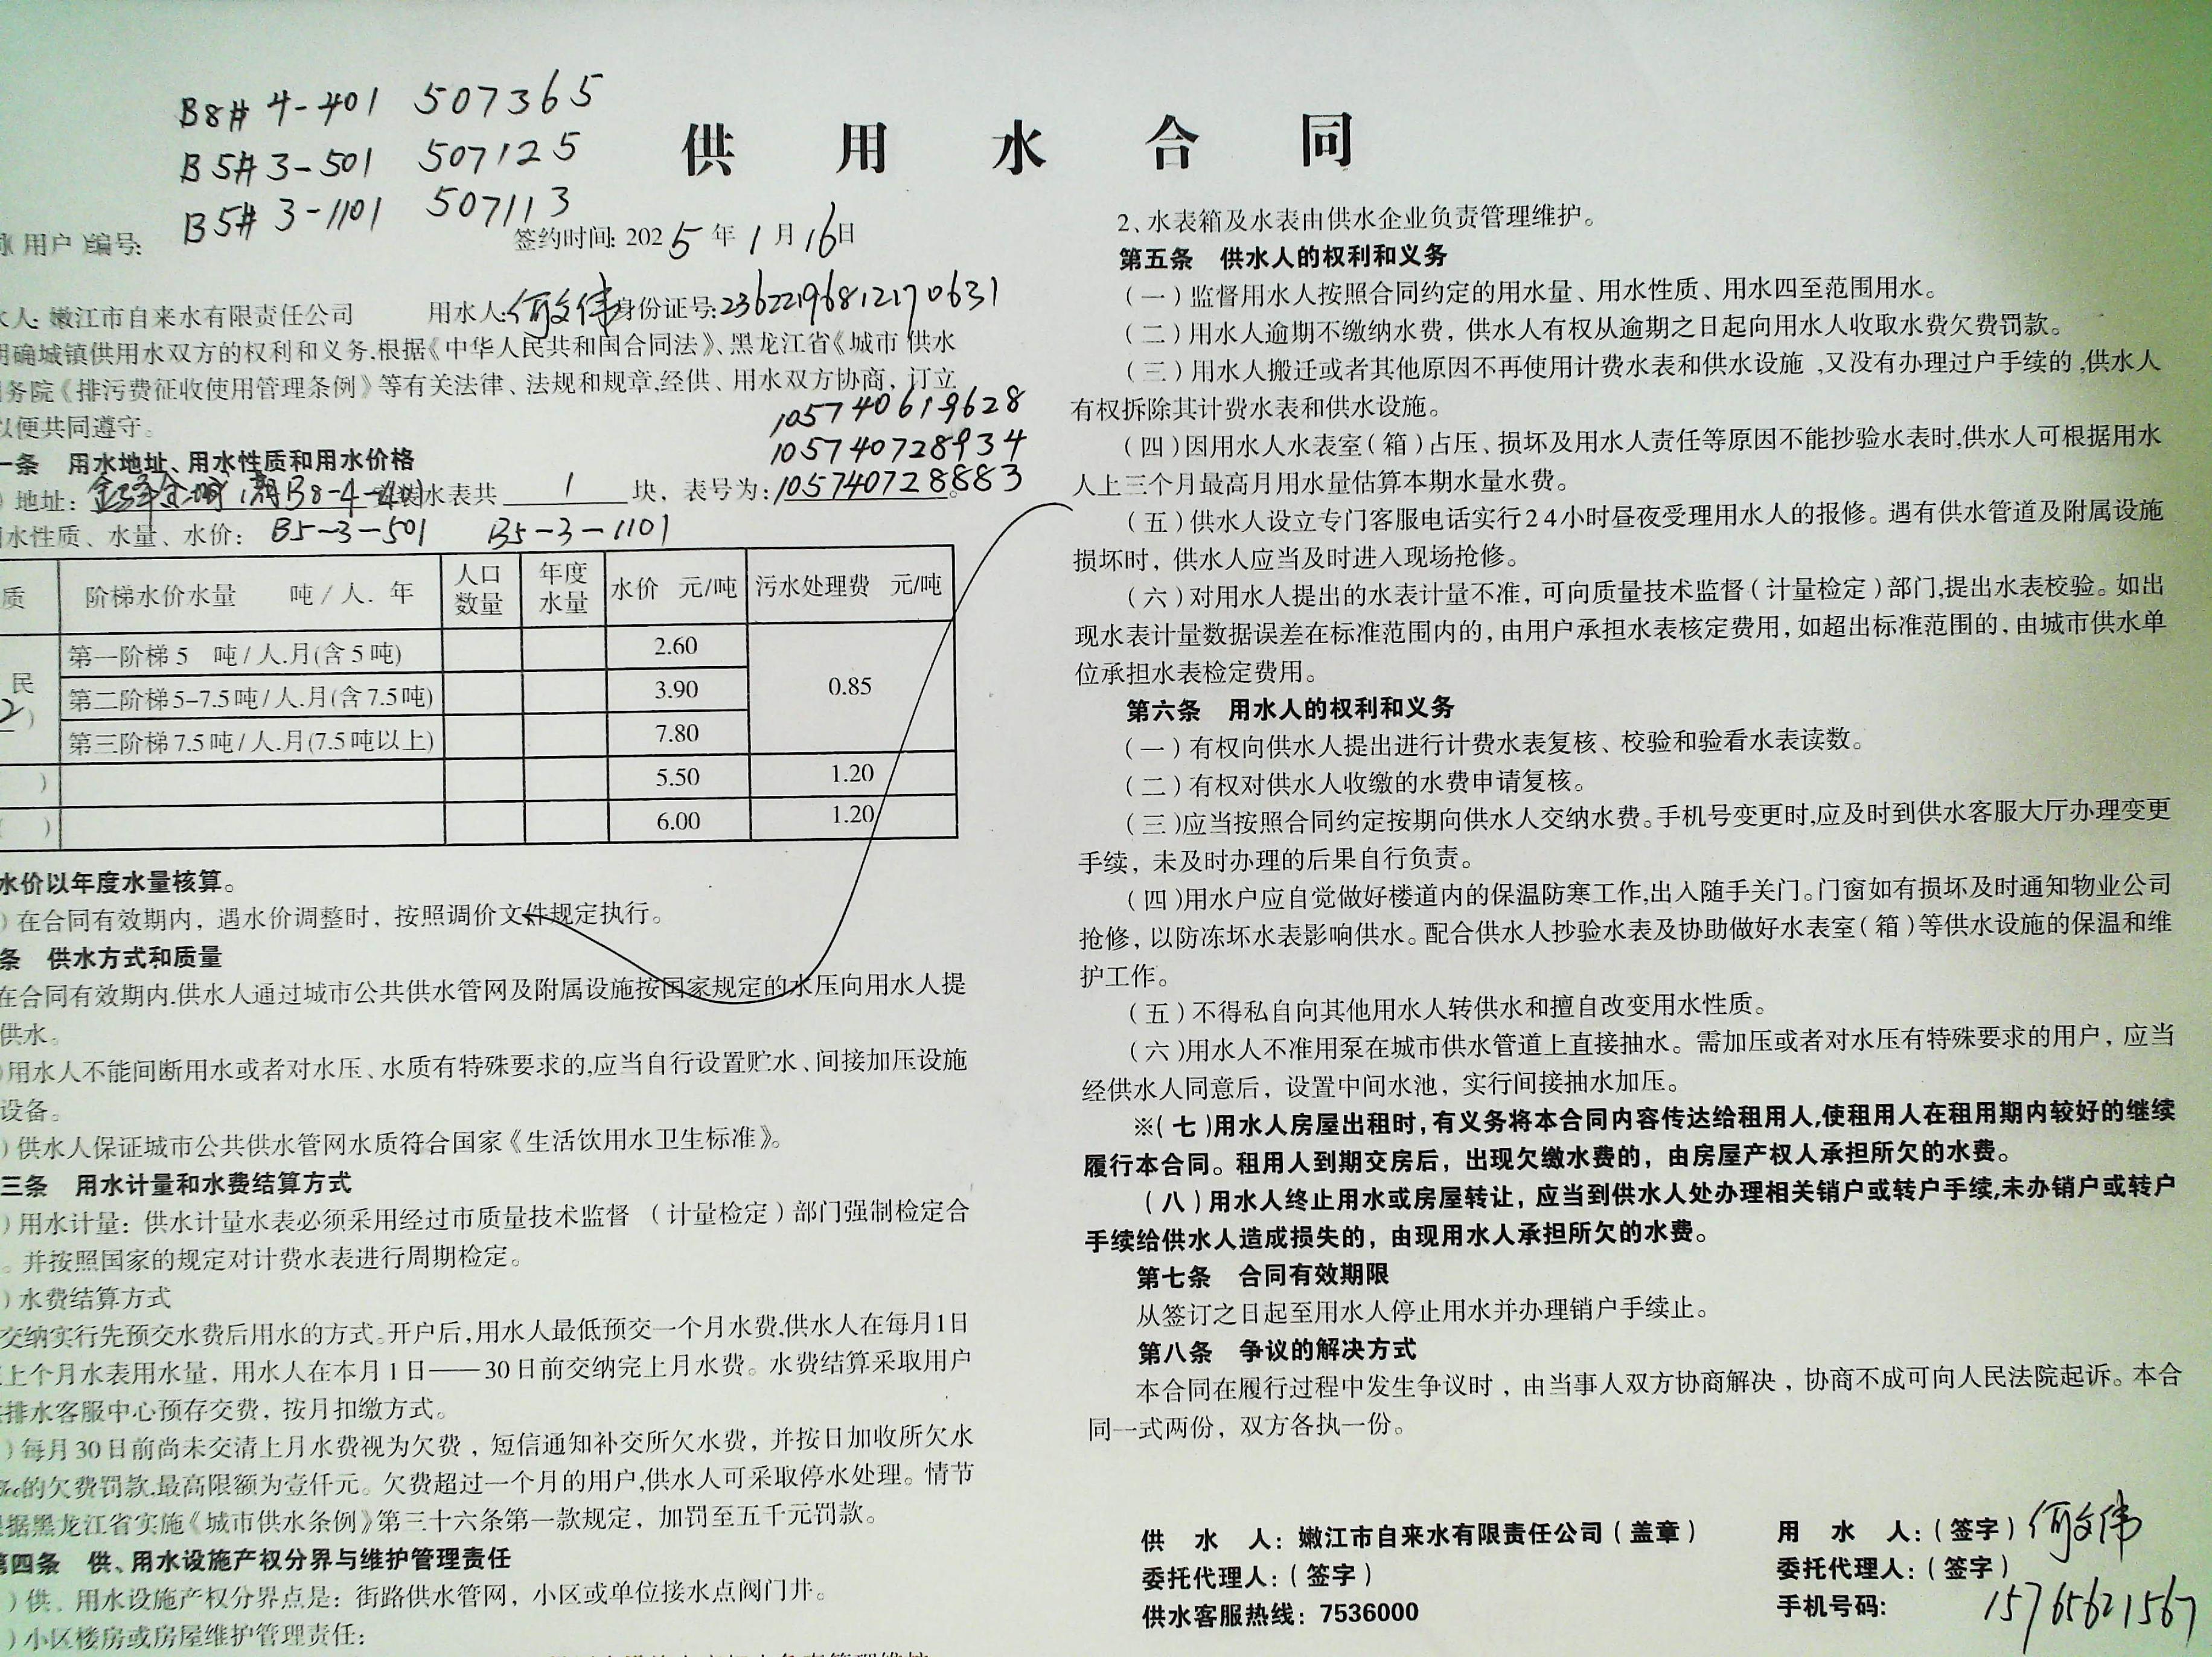 供用水合同
B8# 4-401 507365
B5# 3-501 507125
B5# 3-1101 507113
(用户)编号:
签约时间: 2025年1月16日
水人: 嫩江市自来水有限责任公司 用水人: 何文伟 身份证号: 236221196812170631
明确城镇供用水双方的权利和义务,根据《中华人民共和国合同法》、黑龙江省《城市供水
务院《排污费征收使用管理条例》等有关法律、法规和规章,经供、用水双方协商,订立
以便共同遵守。
105740619628
105740728934
一条 用水地址、用水性质和用水价格
)地址: B8-4-401 装水表共 1 块,表号为: 105740728883。
水性质、水量、水价: B5-3-501 B5-3-1101
质 阶梯水价水量 吨/人.年 人口数量 年度水量 水价 元/吨 污水处理费 元/吨
民 第一阶梯5 吨/人.月(含5吨) 2.60 0.85
第二阶梯5-7.5吨/人.月(含7.5吨) 3.90
第三阶梯7.5吨/人.月(7.5吨以上) 7.80
) 5.50 1.20
( ) 6.00 1.20
水价以年度水量核算。
)在合同有效期内,遇水价调整时,按照调价文件规定执行。
条 供水方式和质量
在合同有效期内,供水人通过城市公共供水管网及附属设施按国家规定的水压向用水人提
供水。
)用水人不能间断用水或者对水压、水质有特殊要求的,应当自行设置贮水、间接加压设施
设备。
)供水人保证城市公共供水管网水质符合国家《生活饮用水卫生标准》。
三条 用水计量和水费结算方式
)用水计量:供水计量水表必须采用经过市质量技术监督(计量检定)部门强制检定合
。并按照国家的规定对计费水表进行周期检定。
)水费结算方式
交纳实行先预交水费后用水的方式。开户后,用水人最低预交一个月水费,供水人在每月1日
上个月水表用水量,用水人在本月1日——30日前交纳完上月水费。水费结算采取用户
排水客服中心预存交费,按月扣缴方式。
)每月30日前尚未交清上月水费视为欠费,短信通知补交所欠水费,并按日加收所欠水
的欠费罚款,最高限额为壹仟元。欠费超过一个月的用户,供水人可采取停水处理。情节
据黑龙江省实施《城市供水条例》第三十六条第一款规定,加罚至五千元罚款。
第四条 供、用水设施产权分界与维护管理责任
)供、用水设施产权分界点是:街路供水管网,小区或单位接水点阀门井。
)小区楼房或房屋维护管理责任:
2、水表箱及水表由供水企业负责管理维护。
第五条 供水人的权利和义务
(一)监督用水人按照合同约定的用水量、用水性质、用水四至范围用水。
(二)用水人逾期不缴纳水费,供水人有权从逾期之日起向用水人收取水费欠费罚款。
(三)用水人搬迁或者其他原因不再使用计费水表和供水设施,又没有办理过户手续的,供水人
有权拆除其计费水表和供水设施。
(四)因用水人水表室(箱)占压、损坏及用水人责任等原因不能抄验水表时,供水人可根据用水
人上三个月最高月用水量估算本期水量水费。
(五)供水人设立专门客服电话实行24小时昼夜受理用水人的报修。遇有供水管道及附属设施
损坏时,供水人应当及时进入现场抢修。
(六)对用水人提出的水表计量不准,可向质量技术监督(计量检定)部门,提出水表校验。如出
现水表计量数据误差在标准范围内的,由用户承担水表核定费用,如超出标准范围的,由城市供水单
位承担水表检定费用。
第六条 用水人的权利和义务
(一)有权向供水人提出进行计费水表复核、校验和验看水表读数。
(二)有权对供水人收缴的水费申请复核。
(三)应当按照合同约定按期向供水人交纳水费。手机号变更时,应及时到供水客服大厅办理变更
手续,未及时办理的后果自行负责。
(四)用水户应自觉做好楼道内的保温防寒工作,出入随手关门。门窗如有损坏及时通知物业公司
抢修,以防冻坏水表影响供水。配合供水人抄验水表及协助做好水表室(箱)等供水设施的保温和维
护工作。
(五)不得私自向其他用水人转供水和擅自改变用水性质。
(六)用水人不准用泵在城市供水管道上直接抽水。需加压或者对水压有特殊要求的用户,应当
经供水人同意后,设置中间水池,实行间接抽水加压。
※(七)用水人房屋出租时,有义务将本合同内容传达给租用人,使租用人在租用期内较好的继续
履行本合同。租用人到期交房后,出现欠缴水费的,由房屋产权人承担所欠的水费。
(八)用水人终止用水或房屋转让,应当到供水人处办理相关销户或转户手续,未办销户或转户
手续给供水人造成损失的,由现用水人承担所欠的水费。
第七条 合同有效期限
从签订之日起至用水人停止用水并办理销户手续止。
第八条 争议的解决方式
本合同在履行过程中发生争议时,由当事人双方协商解决,协商不成可向人民法院起诉。本合
同一式两份,双方各执一份。
供 水 人:嫩江市自来水有限责任公司(盖章) 用 水 人:(签字)何文伟
委托代理人:(签字) 委托代理人:(签字)
供水客服热线:7536000 手机号码: 15765621567